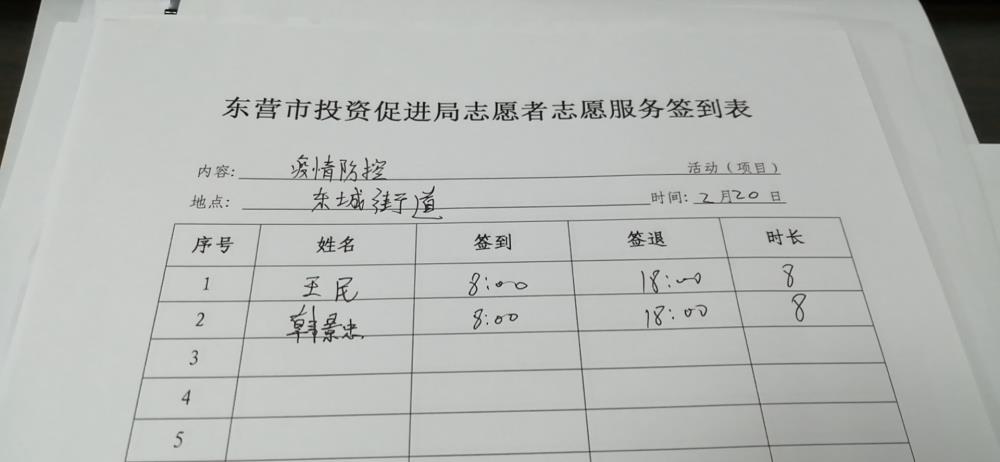 东营市投资促进局志愿者志愿服务签到表
内容: 疫情防控 活动（项目）
地点: 东城街道 时间: 2月20日
序号 姓名 签到 签退 时长
1 王民 8:00 18:00 8
2 韩景忠 8:00 18:00 8
3
4
5